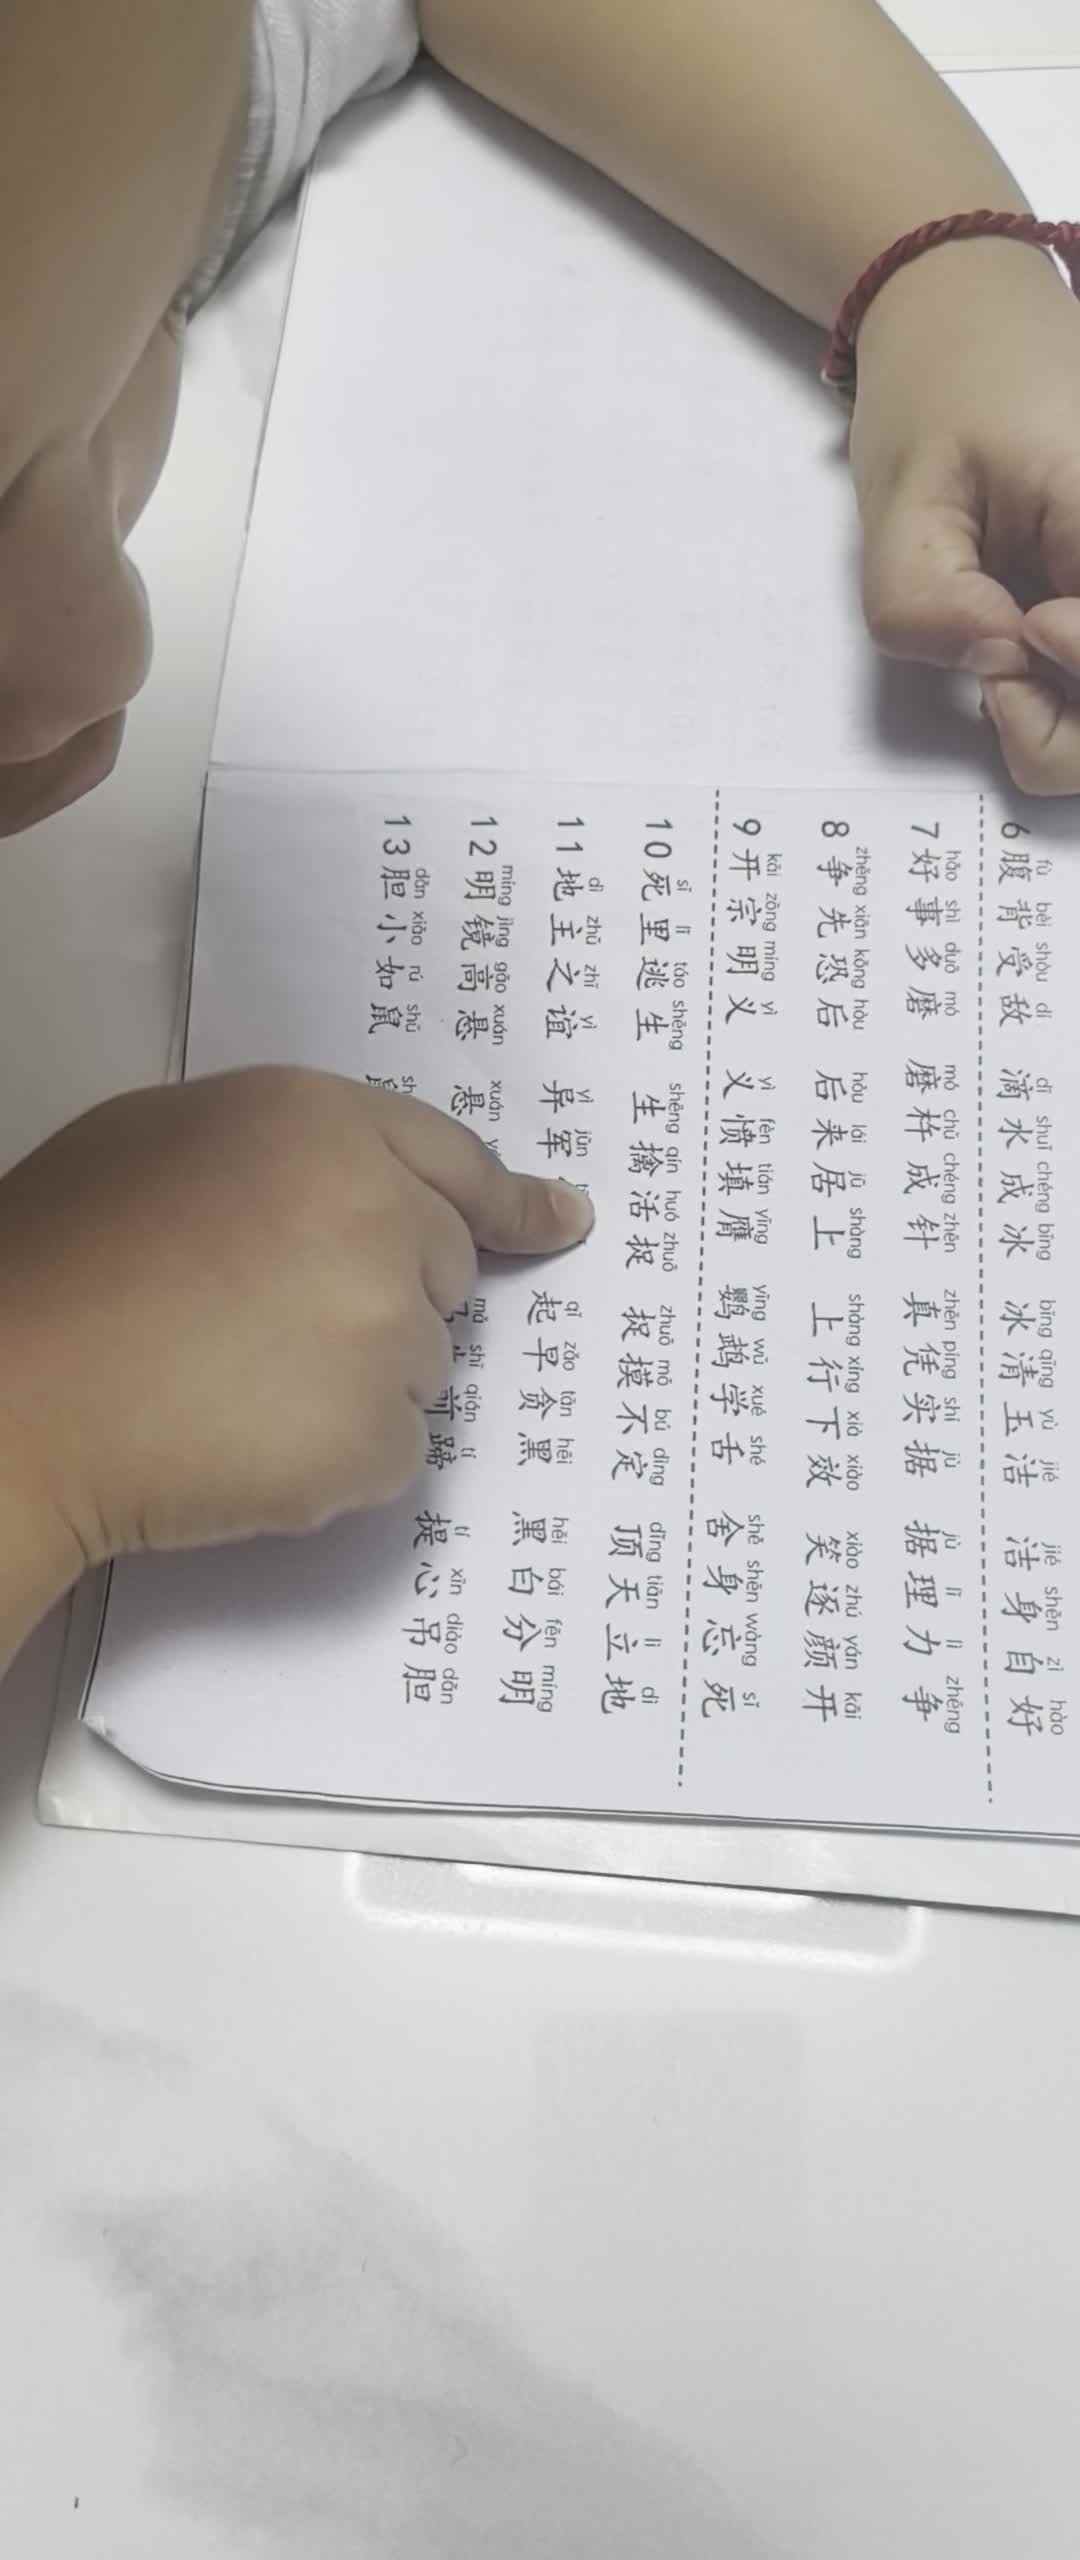 fù bèi shòu dí dī shuǐ chéng bīng bīng qīng yù jié jié shēn zì hào
6腹背受敌 滴水成冰 冰清玉洁 洁身自好
hǎo shì duō mó mó chǔ chéng zhēn zhēn píng shí jù jù lǐ lì zhēng
7好事多磨 磨杵成针 真凭实据 据理力争
zhēng xiān kǒng hòu hòu lái jū shàng shàng xíng xià xiào xiào zhú yán kāi
8争先恐后 后来居上 上行下效 笑逐颜开
kāi zōng míng yì yì fèn tián yīng yīng wǔ xué shé shě shēn wàng sǐ
9开宗明义 义愤填膺 鹦鹉学舌 舍身忘死
sǐ lǐ táo shēng shēng qín huó zhuō zhuō mō bú dìng dǐng tiān lì dì
10死里逃生 生擒活捉 捉摸不定 顶天立地
dì zhǔ zhī yì yì jūn qǐ zǎo tān hēi hēi bái fēn míng
11地主之谊 异军 起早贪黑 黑白分明
míng jìng gāo xuán xuán mǎ shī qián tí tí xīn diào dǎn
12明镜高悬 悬 前蹄 提心吊胆
dǎn xiǎo rú shǔ
13胆小如鼠